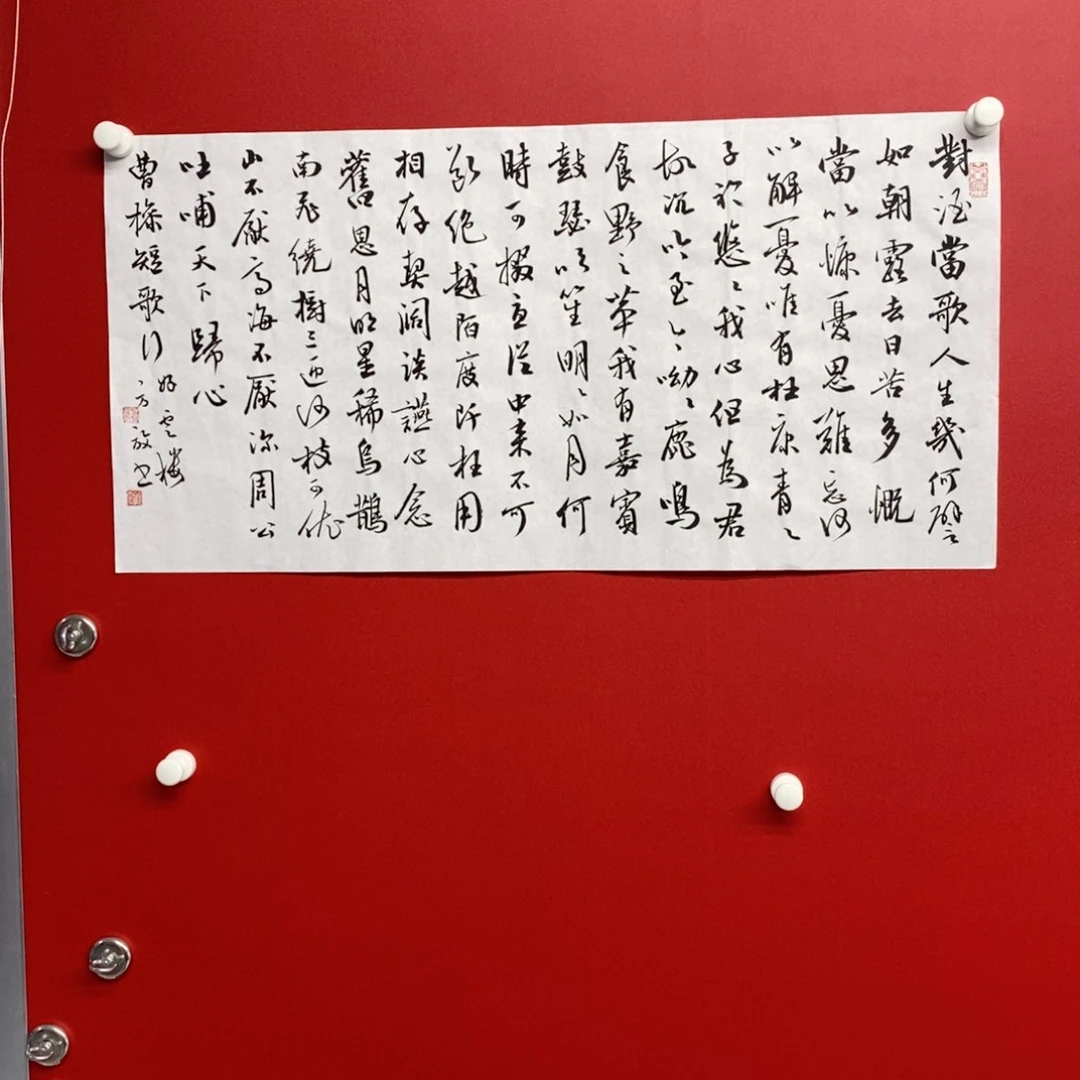 對酒當歌人生幾何譬
如朝露去日苦多慨
當以慷憂思難忘何
以解憂唯有杜康青々
子衿悠々我心但為君
故沉吟至今呦々鹿鳴
食野之苹我有嘉賓
鼓瑟吹笙明々如月何
時可掇憂從中來不可
斷絕越陌度阡枉用
相存契闊談讌心念
舊恩月明星稀烏鵲
南飛繞樹三匝何枝可依
山不厭高海不厭深周公
吐哺天下歸心
曹操短歌行
好雲樓
方放書